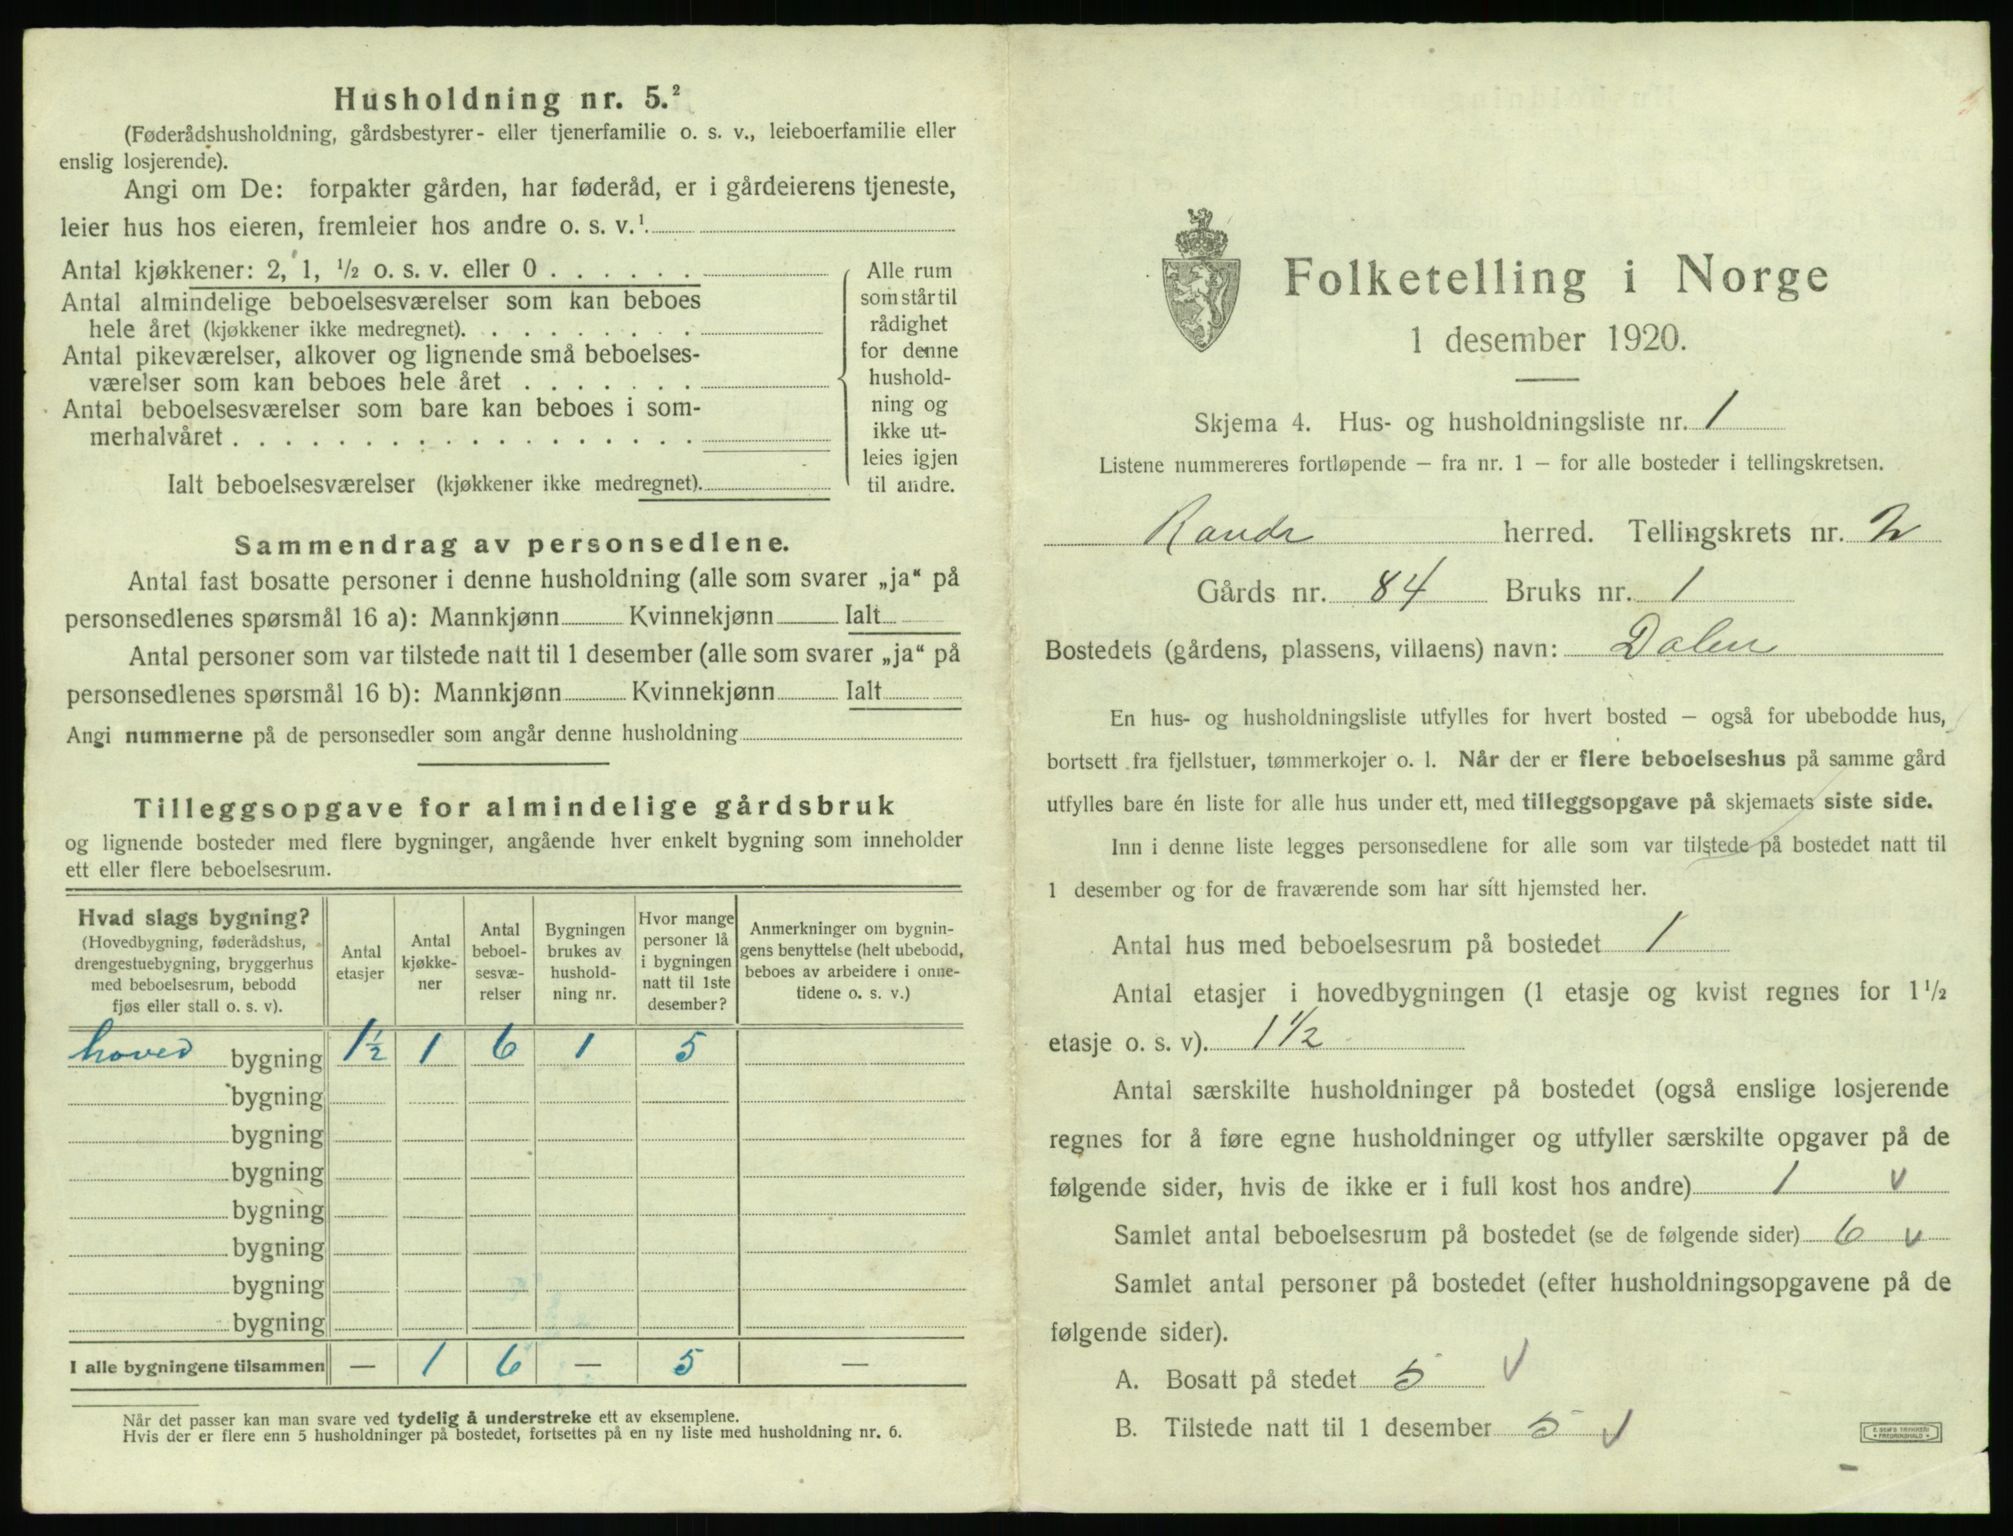 Husholdning nr. 5.²
(Føderådshusholdning, gårdsbestyrer- eller tjenerfamilie o. s. v., leieboerfamilie eller
enslig losjerende).
Angi om De: forpakter gården, har føderåd, er i gårdeierens tjeneste,
leier hus hos eieren, fremleier hos andre o. s. v.¹
Antal kjøkkener: 2, 1, ½ o. s. v. eller 0 . . . . . .
Antal almindelige beboelsesværelser som kan beboes
hele året (kjøkkener ikke medregnet). . . . . . . . .
Antal pikeværelser, alkover og lignende små beboelses-
værelser som kan beboes hele året . . . . . . .
Antal beboelsesværelser som bare kan beboes i som-
merhalvåret . . . . . . . . . . . . . . . . . .
Ialt beboelsesværelser (kjøkkener ikke medregnet).
Alle rum
som står til
rådighet
for denne
hushold-
ning og
ikke ut-
leies igjen
til andre.
Sammendrag av personsedlene.
Antal fast bosatte personer i denne husholdning (alle som svarer „ja“ på
personsedlenes spørsmål 16 a): Mannkjønn Kvinnekjønn Ialt
Antal personer som var tilstede natt til 1 desember (alle som svarer „ja“ på
personsedlenes spørsmål 16 b): Mannkjønn Kvinnekjønn Ialt
Angi nummerne på de personsedler som angår denne husholdning
Tilleggsopgave for almindelige gårdsbruk
og lignende bosteder med flere bygninger, angående hver enkelt bygning som inneholder
ett eller flere beboelsesrum.
Hvad slags bygning?
(Hovedbygning, føderådshus,
drengestuebygning, bryggerhus
med beboelsesrum, bebodd
fjøs eller stall o. s. v).
Antal
etasjer
Antal
kjøkke-
ner
Antal
beboel-
sesvæ-
relser
Bygningen
brukes av
hushold-
ning nr.
Hvor mange
personer lå
i bygningen
natt til 1ste
desember?
Anmerkninger om bygnin-
gens benyttelse (helt ubebodd,
beboes av arbeidere i onne-
tidene o. s. v.)
hoved bygning 1½ 1 6 1 5
bygning
bygning
bygning
bygning
bygning
bygning
bygning
I alle bygningene tilsammen — 1 6 — 5 —
Når det passer kan man svare ved tydelig å understreke ett av eksemplene.
Hvis der er flere enn 5 husholdninger på bostedet, fortsettes på en ny liste med husholdning nr. 6.
Folketelling i Norge
1 desember 1920.
Skjema 4. Hus- og husholdningsliste nr. 1
Listene nummereres fortløpende – fra nr. 1 – for alle bosteder i tellingskretsen.
herred. Tellingskrets nr. 2
Gårds nr. 84 Bruks nr. 1
Bostedets (gårdens, plassens, villaens) navn: Dalen
En hus- og husholdningsliste utfylles for hvert bosted – også for ubebodde hus,
bortsett fra fjellstuer, tømmerkojer o. l. Når der er flere beboelseshus på samme gård
utfylles bare én liste for alle hus under ett, med tilleggsopgave på skjemaets siste side.
Inn i denne liste legges personsedlene for alle som var tilstede på bostedet natt til
1 desember og for de fraværende som har sitt hjemsted her.
Antal hus med beboelsesrum på bostedet 1
Antal etasjer i hovedbygningen (1 etasje og kvist regnes for 1½
etasje o. s. v). 1½
Antal særskilte husholdninger på bostedet (også enslige losjerende
regnes for å føre egne husholdninger og utfyller særskilte opgaver på de
følgende sider, hvis de ikke er i full kost hos andre) 1 v
Samlet antal beboelsesrum på bostedet (se de følgende sider) 6 v
Samlet antal personer på bostedet (efter husholdningsopgavene på de
følgende sider).
A. Bosatt på stedet 5 v
B. Tilstede natt til 1 desember 5 v